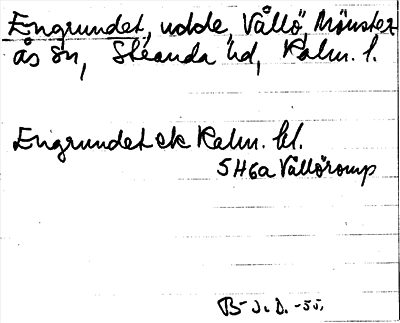 Engrundet, udde, Vållö, Mönster-
ås sn, Stranda hd, Kalm. l.
Engrundet ek Kalm. bl.
5H6a Vållöromp
B- J. D. -55.